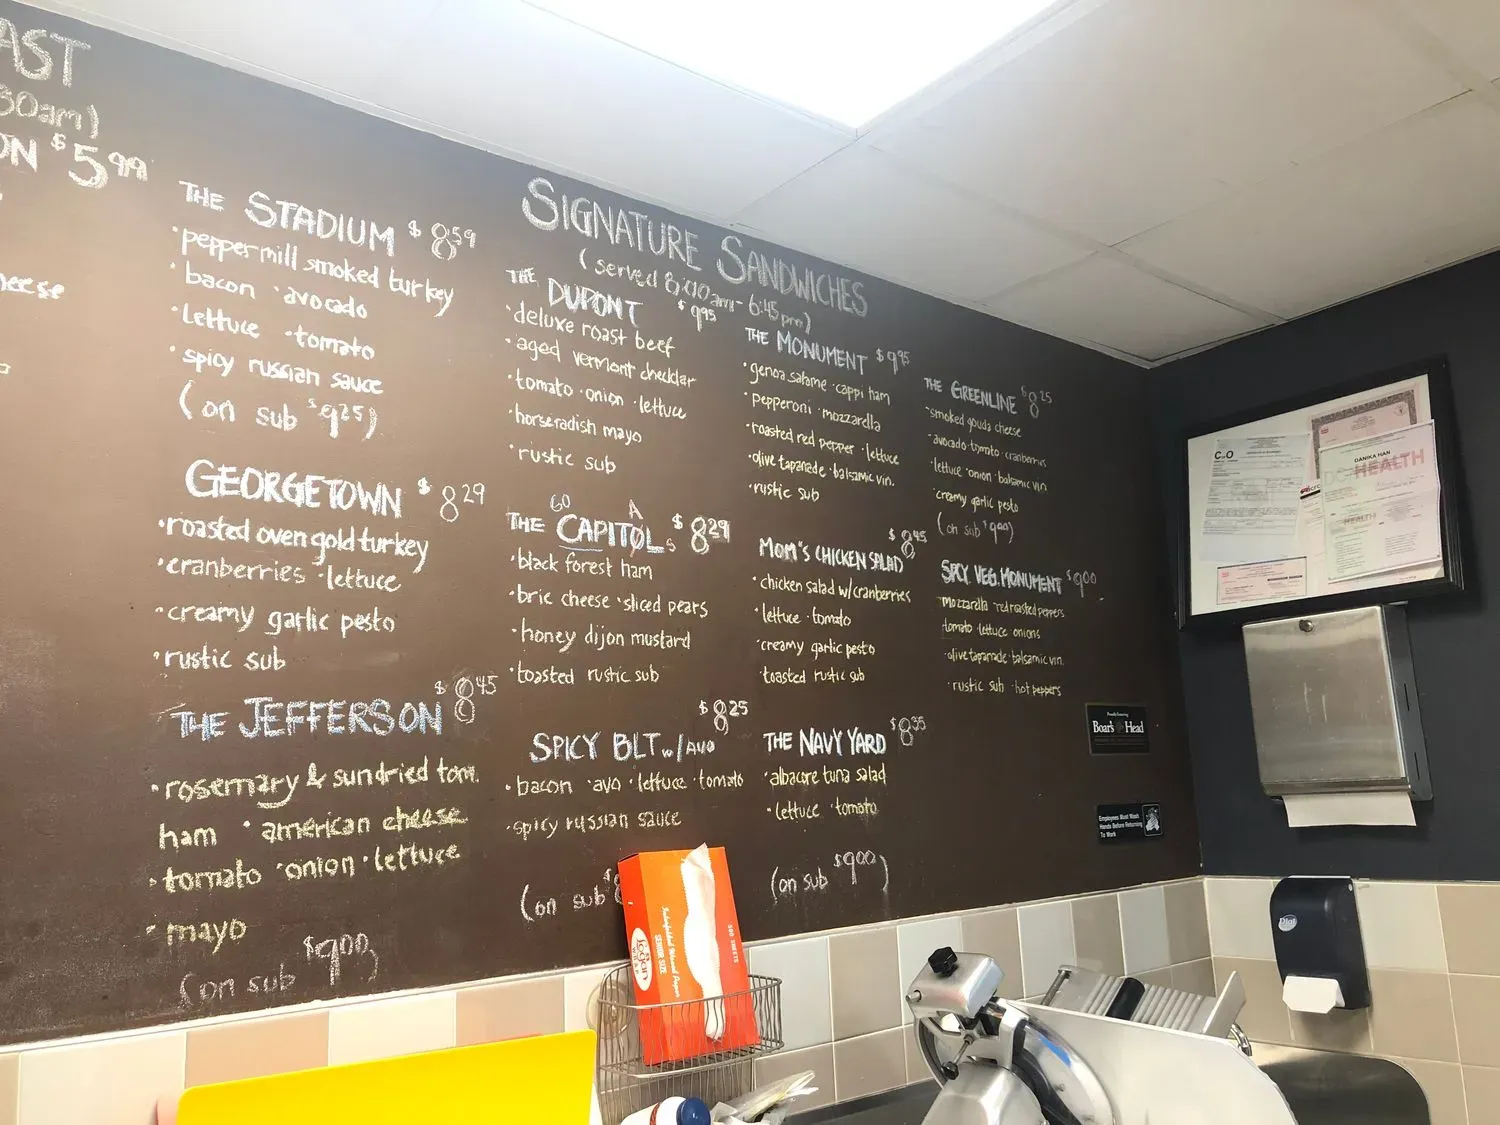 AST
30am)
ON $5.99
heese
THE STADIUM $8.59
·peppermill smoked turkey
·bacon ·avocado
·Lettuce ·tomato
·spicy russian sauce
(on sub $9.25)
GEORGETOWN $8.29
·roasted oven gold turkey
·cranberries ·lettuce
·creamy garlic pesto
·rustic sub
THE JEFFERSON $8.45
·rosemary & sundried tom.
ham ·american cheese
·tomato ·onion ·lettuce
·mayo
(on sub $9.00)
SIGNATURE SANDWICHES
(served 8:00am- 6:45pm)
THE DUPONT $9.95
·deluxe roast beef
·aged vermont cheddar
·tomato ·onion ·lettuce
·horseradish mayo
·rustic sub
GO A
THE CAPITOLS $8.29
·black forest ham
·brie cheese ·sliced pears
·honey dijon mustard
·toasted rustic sub
SPICY BLT w/AVO $8.25
·bacon ·avo ·lettuce ·tomato
·spicy russian sauce
(on sub $
THE MONUMENT $9.95
·genoa salame ·cappi ham
·pepperoni ·mozzarella
·roasted red pepper ·lettuce
·olive tapanade ·balsamic vin.
·rustic sub
MOM'S CHICKEN SALAD $8.45
·chicken salad w/cranberries
·lettuce ·tomato
·creamy garlic pesto
·toasted rustic sub
THE NAVY YARD $8.35
·albacore tuna salad
·lettuce ·tomato
(on sub $9.00)
THE GREENLINE $8.25
·smoked gouda cheese
·avocado ·tomato ·cranberries
·lettuce ·onion ·balsamic vin
·creamy garlic pesto
(on sub $9.00)
SPCY VEG. MONUMENT $9.00
mozzarella ·red roasted peppers
tomato ·lettuce onions
·olive tapanade ·balsamic vin.
·rustic sub ·hot peppers
Boar's Head
Employees Must Wash
Hands Before Returning
To Work
CofO
DANIKA HAN
HEALTH
HEALTH
Dial
Interfolded Waxed Paper
SENIOR SIZE
500 SHEETS